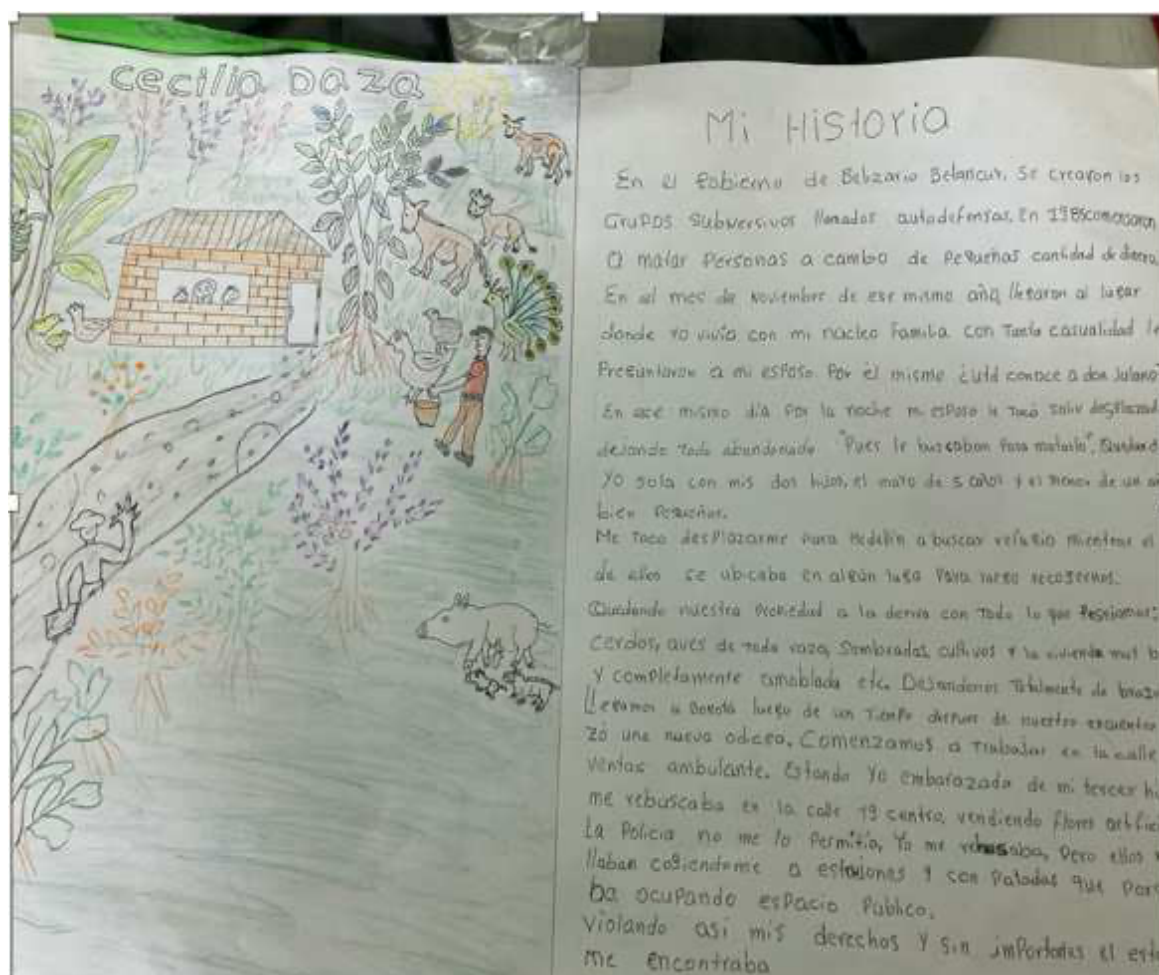 cecilia Daza
Mi Historia
En el Gobierno de Belizario Betancur. Se crearon los
Grupos Subversivos llamados autodefensas. En 1985
a matar Personas a cambo de Pequeñas cantidad de dinero.
En el mes de Noviembre de ese mismo año, llegaron al lugar
donde Yo vivía con mi nucleo Familia con Tanta casualidad le
Preguntaron a mi esPoso Por el mismo ¿Utd conoce a don Julano?
En ese mismo día Por la noche mi esPoso le Tocó Salir
dejando todo abandonado "Pues le buscaban Para matarlo".
Yo sola con mis dos hijos, el mayo de 5 años y el menor de un
bien Pequeños.
Me Toco desPlazarme Para Medellin a buscar refugio mientras el
de ellos se ubicaba en algún luga Para luego recogernos.
Quedando nuestra Propiedad a la deriva con Todo lo que
Cerdos, aves de toda raza, Sembradas, cultivos Y la vivienda muy
Y completamente amoblada etc. Dejandonos Totalmente de
Llegamos a Bogotá luego de un Tiempo despues de nuestro encuentro
zó una nueva odicea. Comenzamos a Trabajar en la calle
ventas ambulante. Estando Yo embarazada de mi tercer
me rebuscaba en la calle 19 centro, vendiendo flores
La Policia no me lo Permitía, Yo me rehusaba, Pero ellos
llaban cogiendome a estaciones y con Patadas que
ba ocupando esPacio Público.
Violando asi mis derechos Y sin importarles el
me encontraba